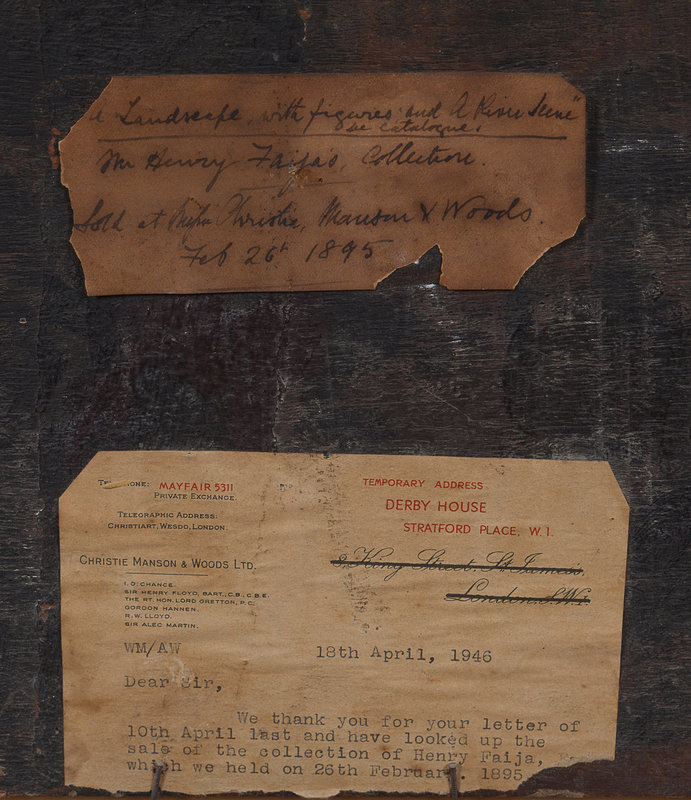 A Landscape, with figures and A River Scene"
see catalogue.
Mr Henry Faija's, Collection.
Sold at Christie, Manson & Woods.
Feb 26th 1895
MAYFAIR 5311
PRIVATE EXCHANGE.
TELEGRAPHIC ADDRESS:
CHRISTIART, WESDO, LONDON.
CHRISTIE MANSON & WOODS LTD.
I. O. CHANCE.
SIR HENRY FLOYD, BART., C.B., C.B.E.
THE RT. HON. LORD GRETTON, P.C.
GORDON HANNEN.
R. W. LLOYD.
SIR ALEC MARTIN.
TEMPORARY ADDRESS
DERBY HOUSE
STRATFORD PLACE, W.1.
8, King Street, St James's,
London, S.W.1.
WM/AW
18th April, 1946
Dear Sir,
We thank you for your letter of
10th April last and have looked up the
sale of the collection of Henry Faija,
which we held on 26th February, 1895